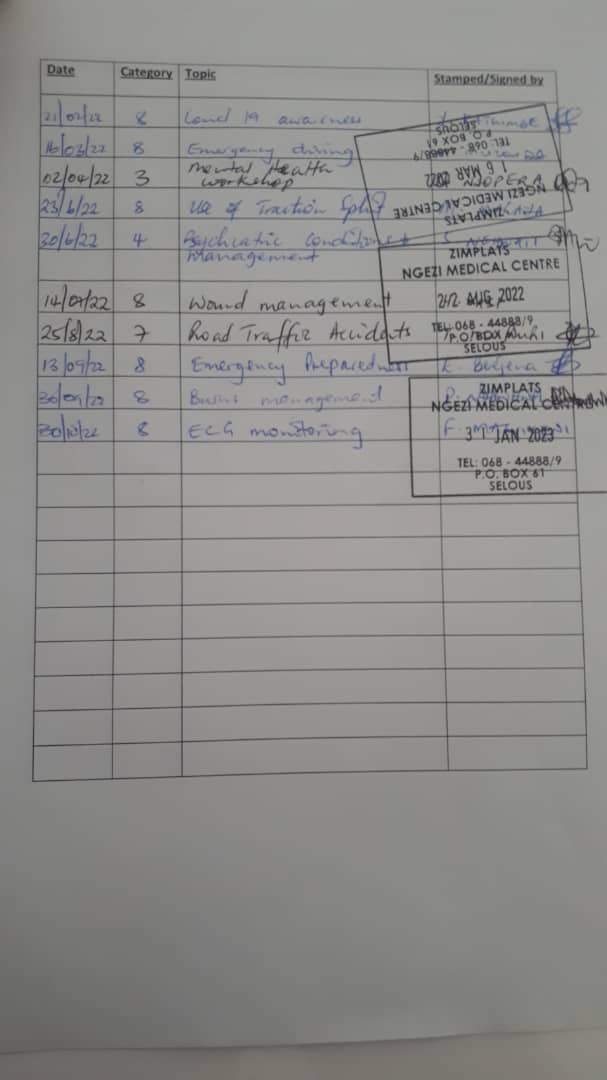 Date Category Topic Stamped/Signed by
21/02/22 8 Covid 19 awareness
16/03/22 8 Emergency driving
02/04/22 3 Mental Health
workshop
23/6/22 8 Use of Traction Splint
30/6/22 4 Psychiatric Conditions
Management
14/07/22 8 Wound management
25/8/22 7 Road Traffic Accidents
13/09/22 8 Emergency Preparedness
30/09/22 8 Burns management
30/10/22 8 ECG monitoring
ZIMPLATS
NGEZI MEDICAL CENTRE
16 MAR 2022
TEL: 068 - 44888/9
P.O. BOX 61
SELOUS
ZIMPLATS
NGEZI MEDICAL CENTRE
AUG 2022
TEL: 068 - 44888/9
P.O. BOX
SELOUS
ZIMPLATS
NGEZI MEDICAL CENTRE
31 JAN 2023
TEL: 068 - 44888/9
P.O. BOX 61
SELOUS